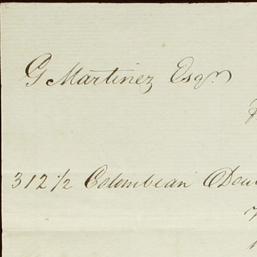 G Martinez Esqr
312 1/2 Colombian